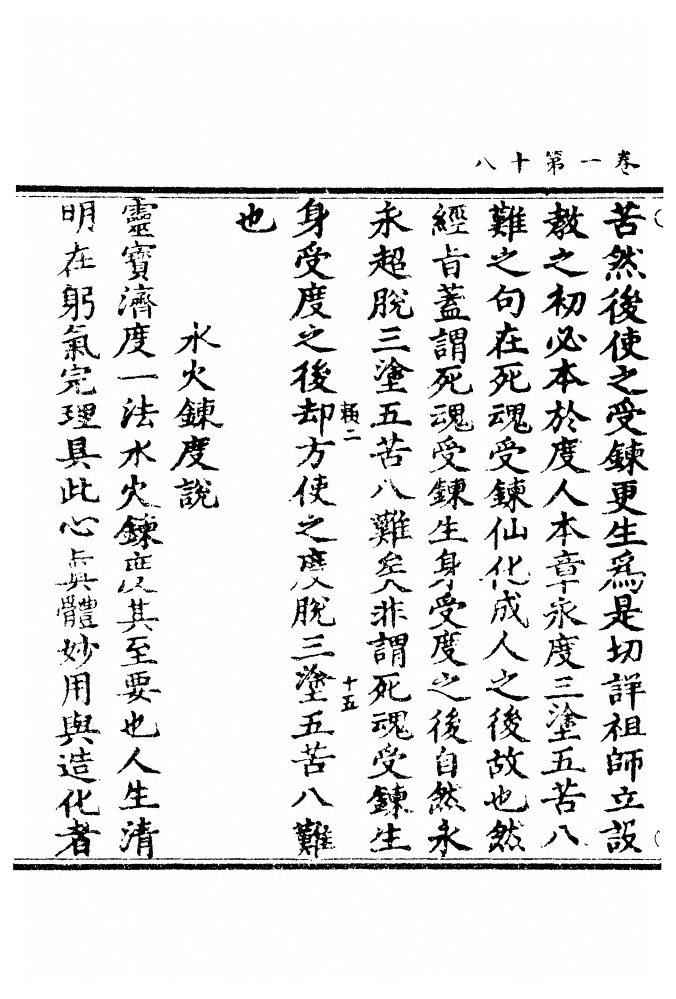 卷一第十八
苦然後使之受鍊更生爲是切詳祖師立設
敎之初必本於度人本章永度三塗五苦八
難之句在死魂受鍊仙化成人之後故也然
經旨蓋謂死魂受鍊生身受度之後自然永
永超脫三塗五苦八難矣非謂死魂受鍊生
身受度之後却方使之度脫三塗五苦八難
賴二
十五
也
水火鍊度說
靈寶濟度一法水火鍊度其至要也人生清
明在躬氣完理具此心眞體妙用與造化者